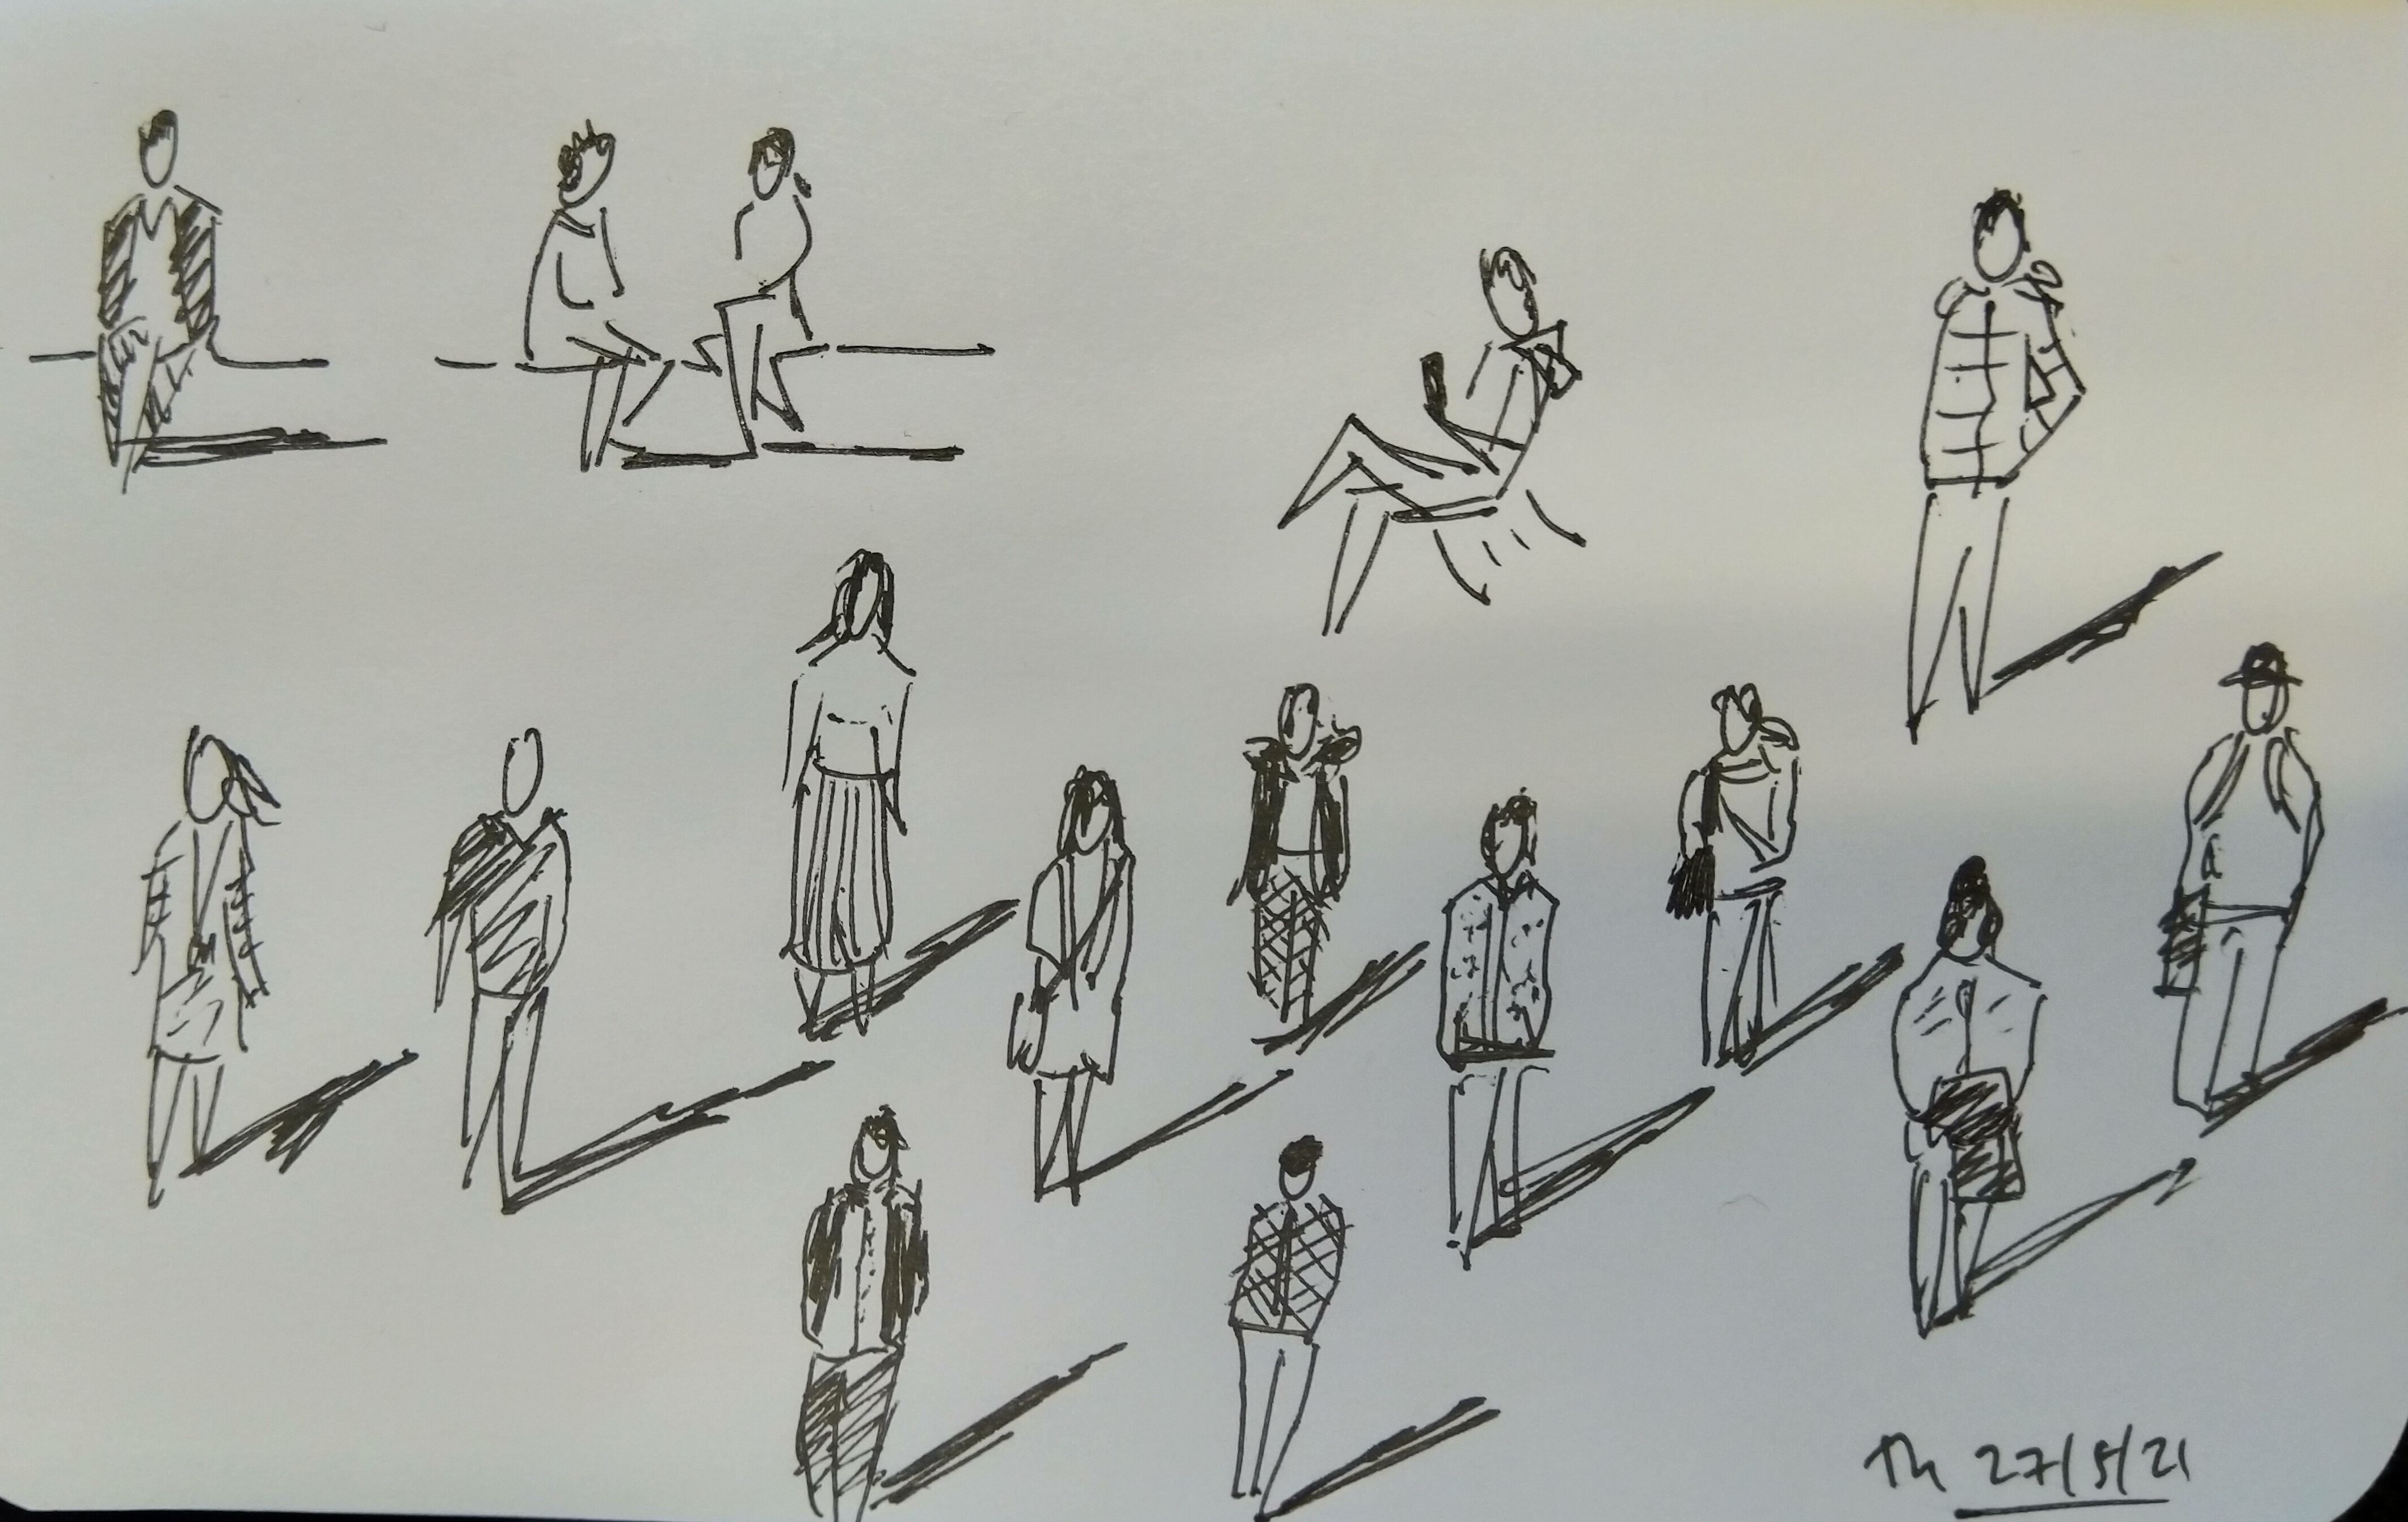 Th 27/5/21